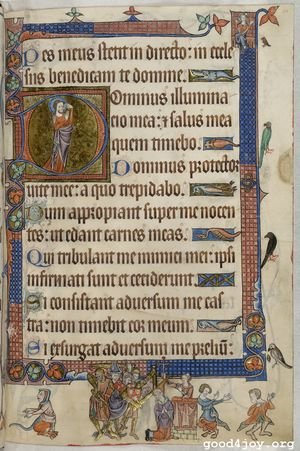 Pes meus stetit in directo: in eccle
siis benedicam te domine.
Dominus illumina
cio mea: & salus mea
quem timebo.
Dominus protector
uite mee: a quo trepidabo.
Dum appropiant super me nocen
tes: ut edant carnes meas.
Qui tribulant me inimici mei: ipsi
infirmati sunt et ceciderunt.
Si consistant adversum me cas
tra: non timebit cor meum.
Si exsurgat adversum me prelium:
good4joy.org